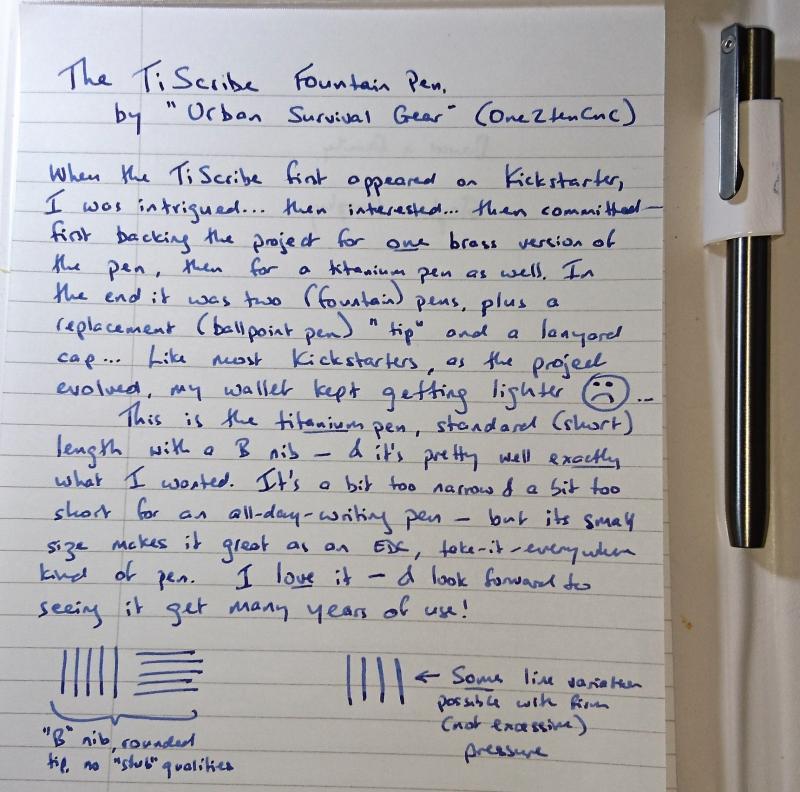 The TiScribe Fountain Pen.
by "Urban Survival Gear" (One2tenCNC)
When the TiScribe first appeared on Kickstarter,
I was intrigued... then interested... then committed —
first backing the project for one brass version of
the pen, then for a titanium pen as well. In
the end it was two (fountain) pens, plus a
replacement (ballpoint pen) "tip" and a lanyard
cap... Like most Kickstarters, as the project
evolved, my wallet kept getting lighter ☹...
This is the titanium pen, standard (short)
length with a B nib — & it's pretty well exactly
what I wanted. It's a bit too narrow & a bit too
short for an all-day-writing pen — but its small
size makes it great as an EDC, take-it-everywhere
kind of pen. I love it — & look forward to
seeing it get many years of use!
"B" nib, rounded
tip, no "stub" qualities
← Some line variation
possible with firm
(not excessive)
pressure